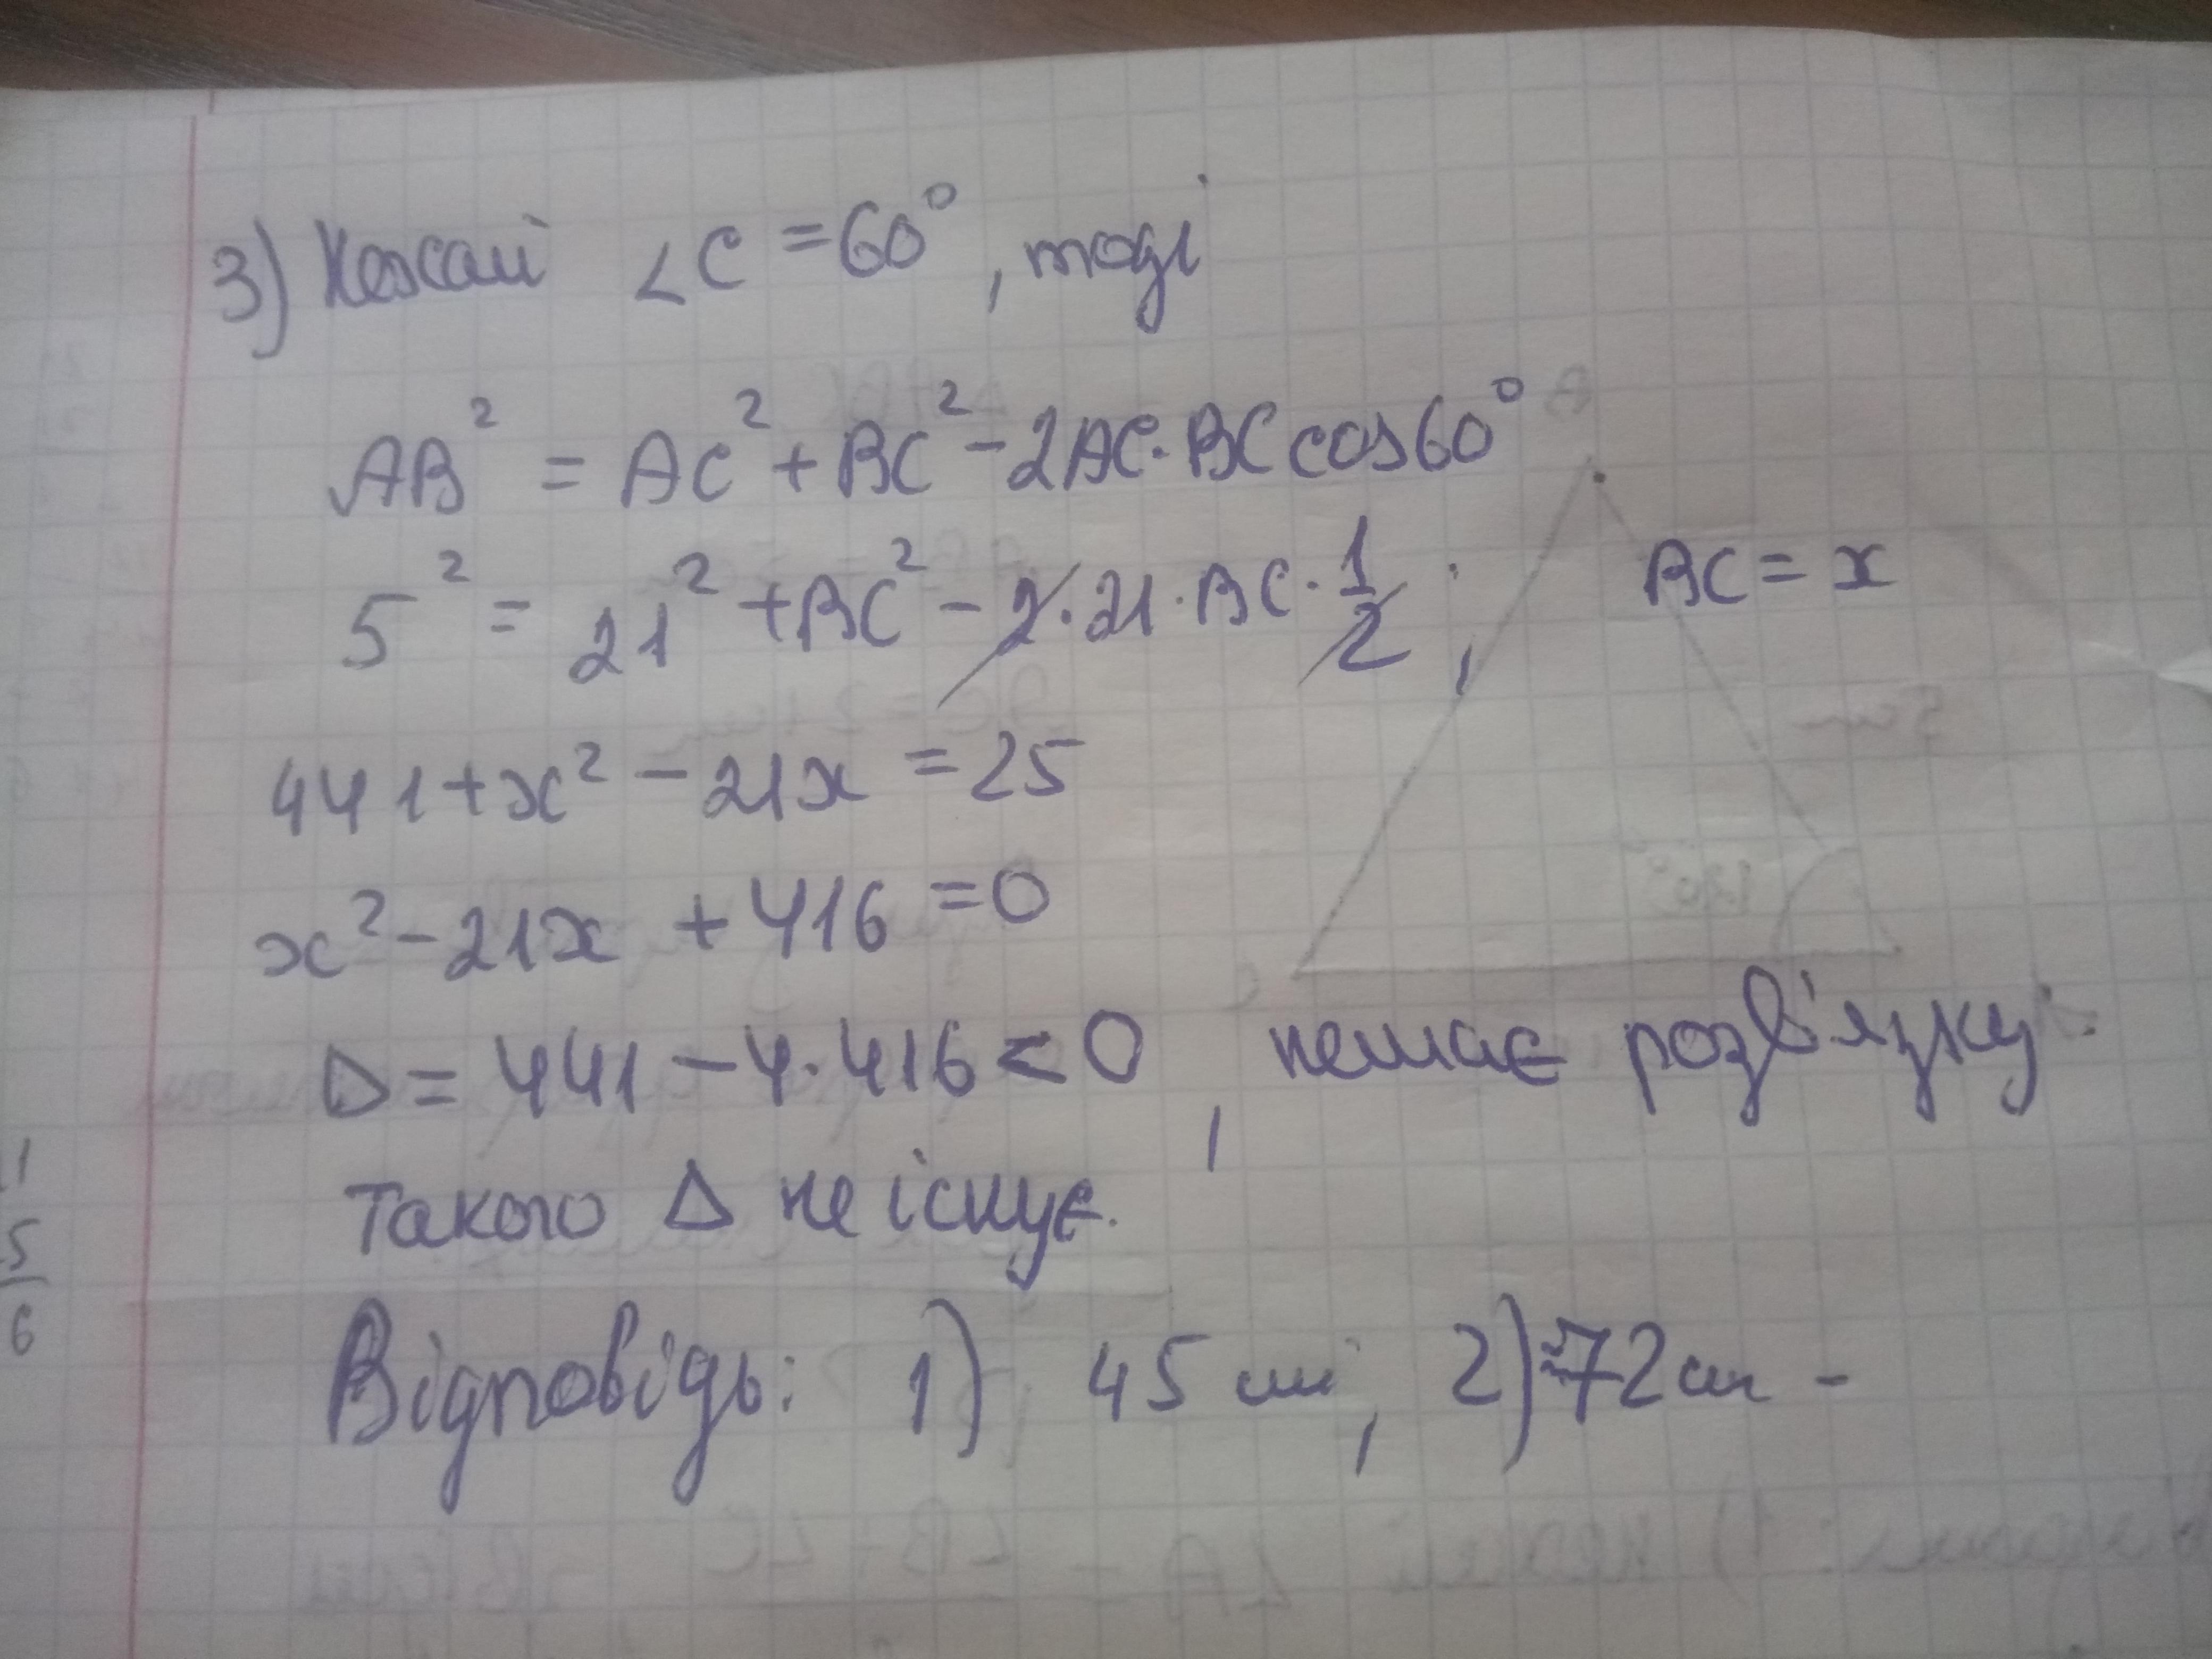 3) Нехай ∠C = 60°, тоді
AB² = AC² + BC² - 2AC·BC cos60°
5² = 21² + BC² - 2·21·BC·1/2; BC = x
441 + x² - 21x = 25
x² - 21x + 416 = 0
D = 441 - 4·416 < 0, немає розв'язку.
Такого Δ не існує.
Відповідь: 1) 45 см; 2) 72 см -
1
5
6